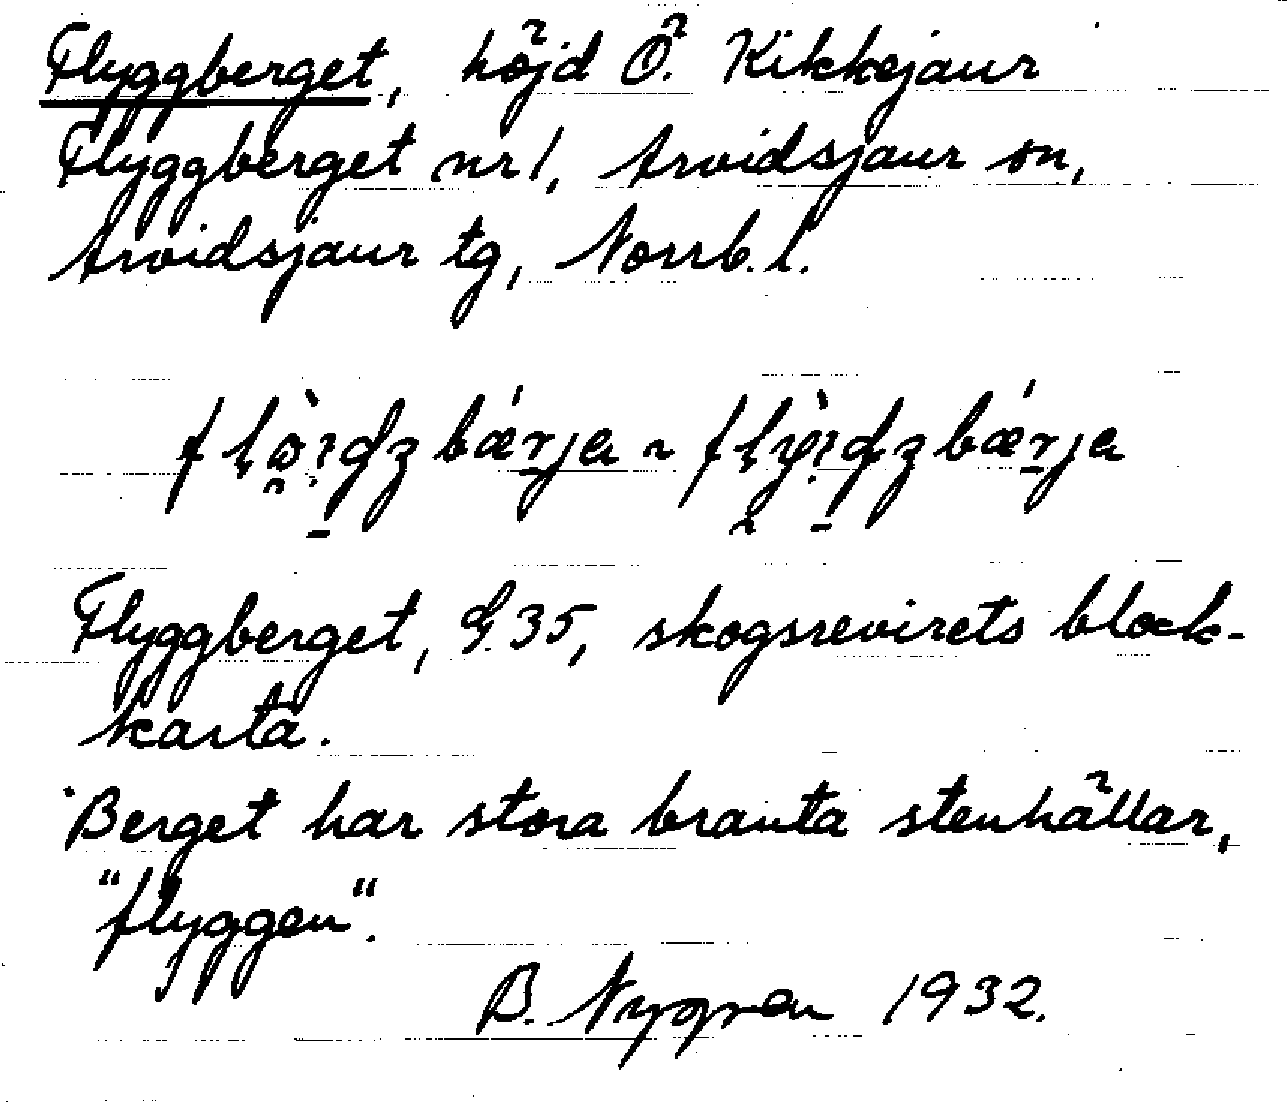 Flyggberget, höjd Ö. Kikkejaur
Flyggberget nr 1, Arvidsjaur sn,
Arvidsjaur tg, Norrb. l.
Flyggberget, G. 35, skogsrevirets block-
karta.
Berget har stora branta stenhällar,
"flyggen".
B. Nygren 1932.